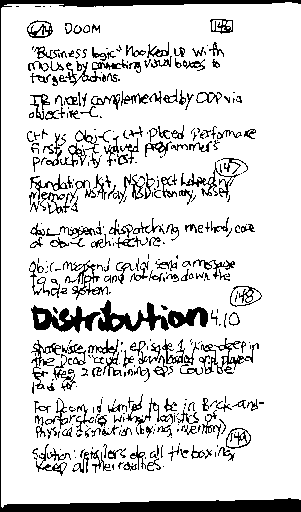 6/4 DOOM 146
"Business logic" hooked up with
mouse by connecting visual boxes to
targets/actions.
IB nicely complemented by OOP via
objective-C.
C++ vs Obj-C, C++ placed performance
first, Obj-C valued programmer's
productivity first.
147
Foundation Kit, NSObject helped w/
memory, NSArray, NSDictionary, NSSet,
NSData
objc_msgsend, dispatching method, core
of obj-C architecture.
Objc-msgsend could send a message
to a nullptr and not bring down the
whole system.
148
Distribution 4.10
Shareware model: episode 1 "Knee-deep in
the Dead" could be downloaded and played
for free, 2 remaining eps could be
paid for.
For Doom, id wanted to be in Brick-and-
mortar stores without logistics of
Physical distribution (boxing, inventory)
149
Solution: retailers do all the boxing,
keep all the royalties.